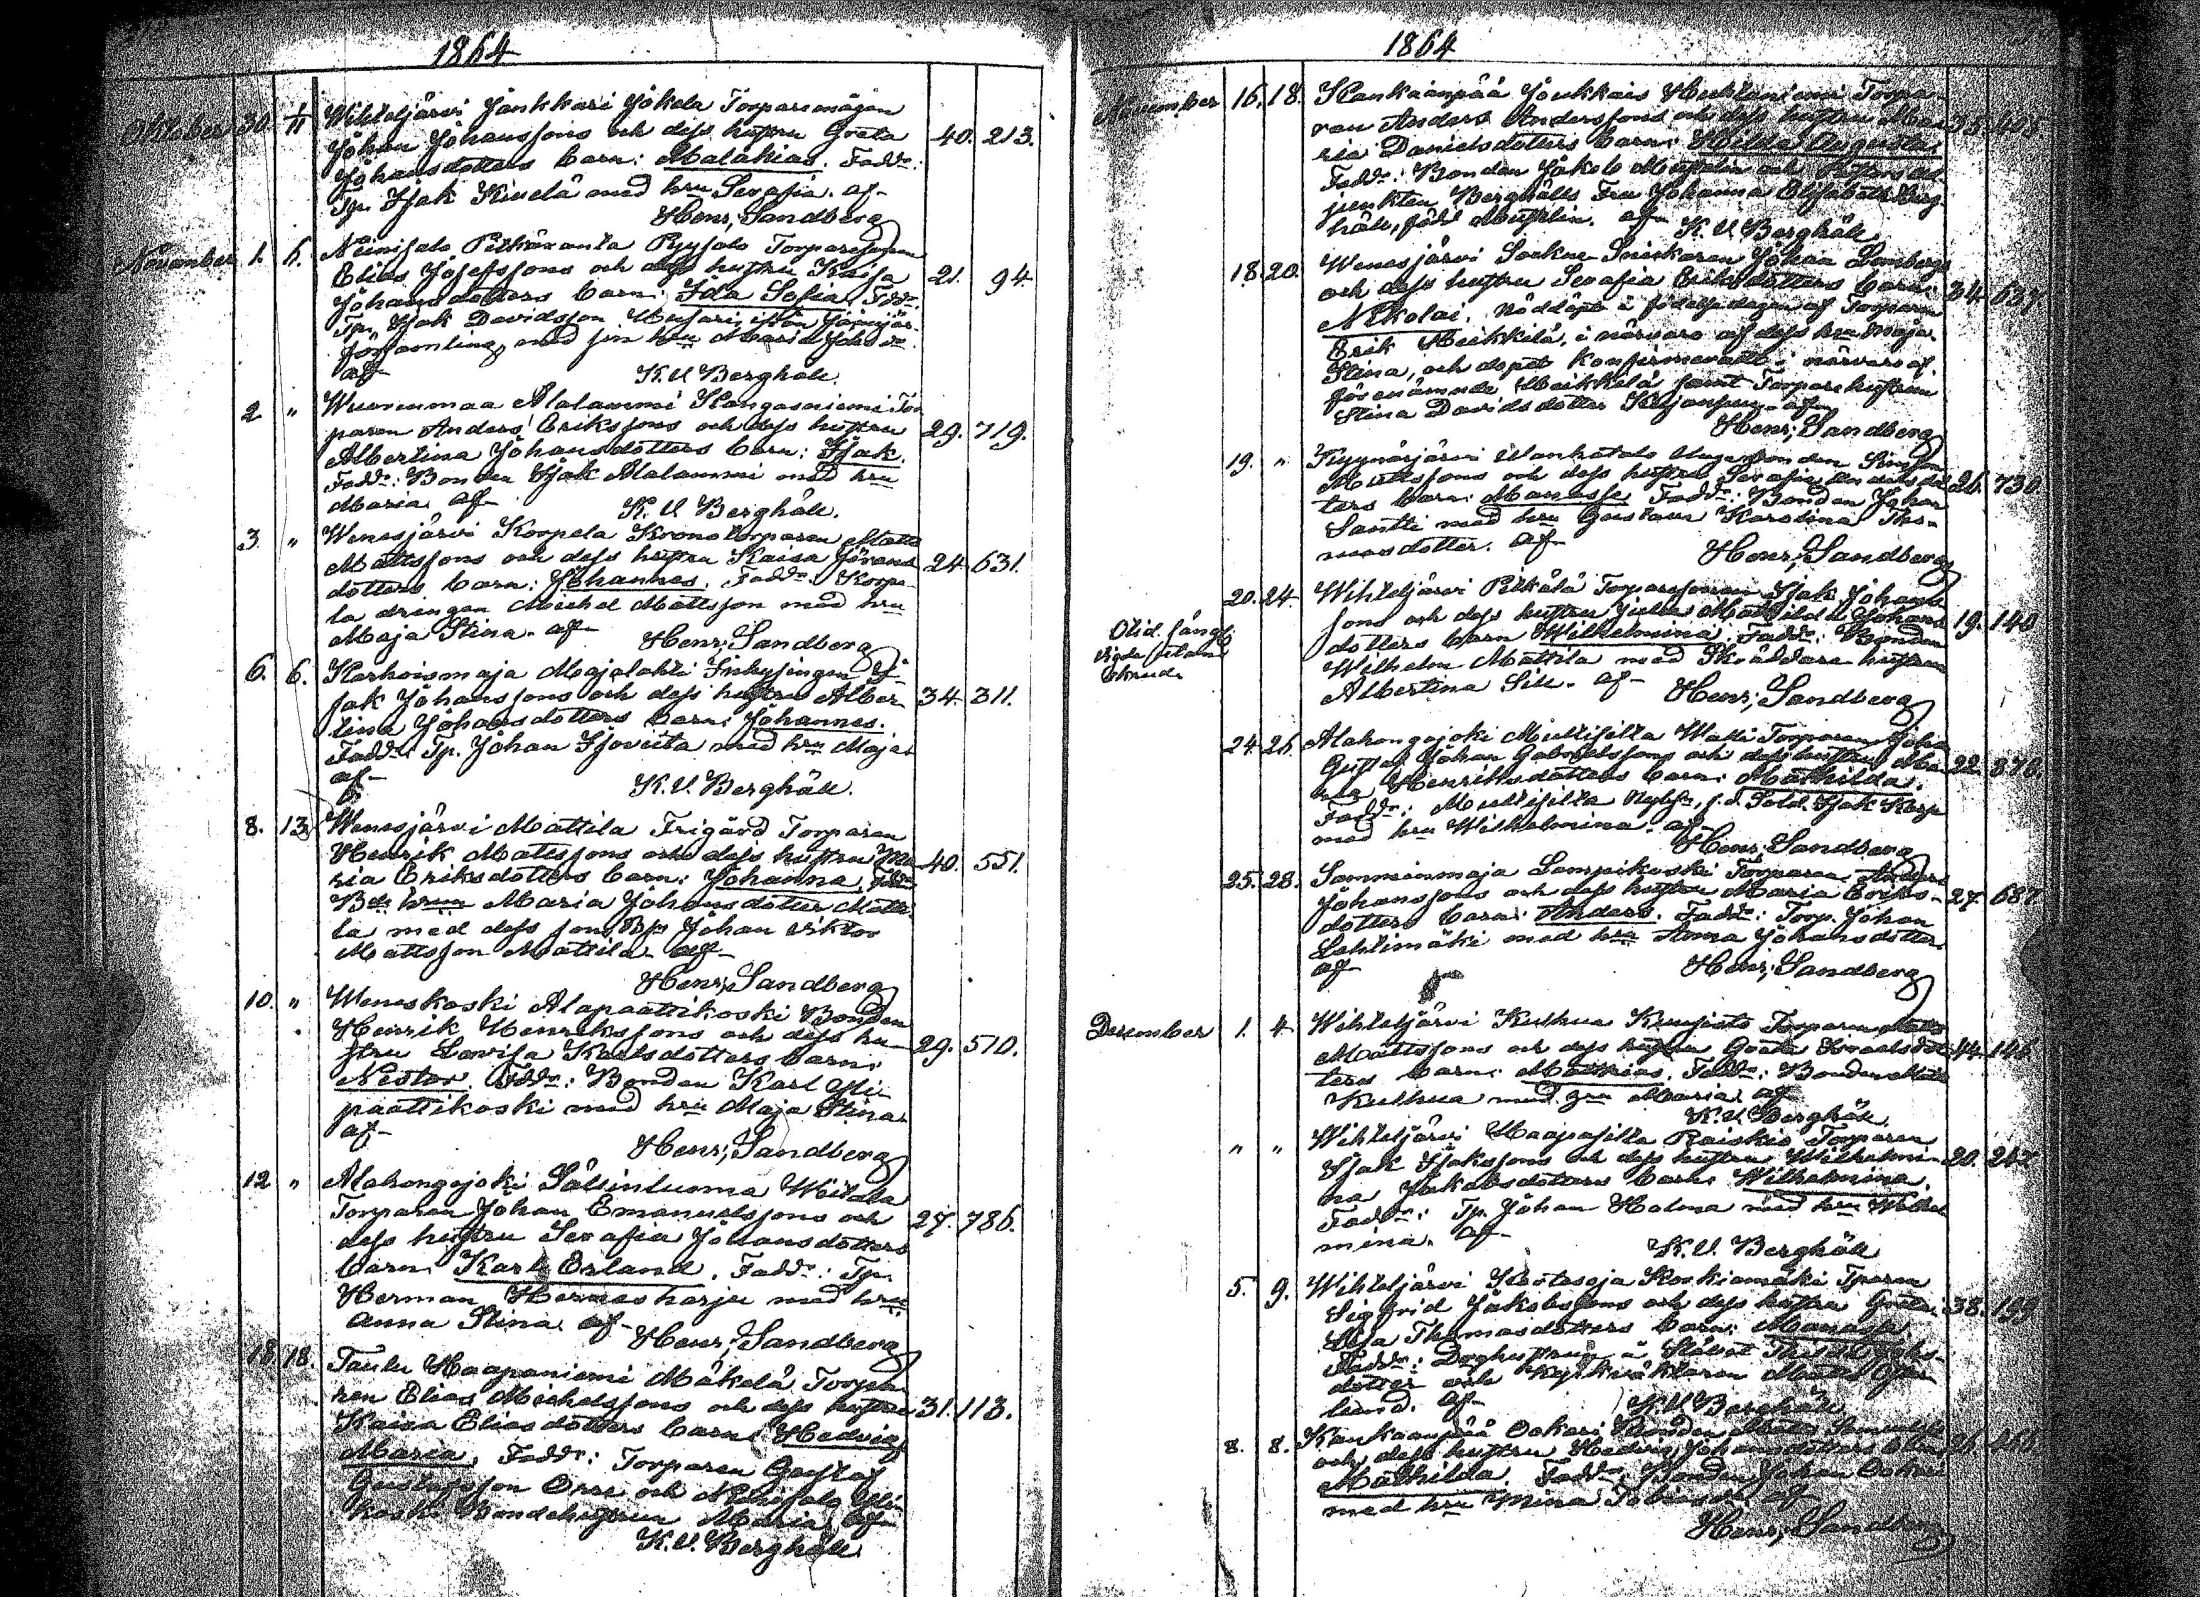 1864
Oktober 30. 1/11 Wihteljärvi Jänkkäri Jokela Torparemågen
Johan Johanssons och dess hustru Greta 40. 213.
Johansdotters barn: Malakias. Fadd:
Tp. Isak Kiuelä med hru Serafia. af
Henr; Sandberg
November 1. 6. Niinisalo Pitkäranta Pyysalo Torparesonen
Elias Josefssons och dess hustru Kaisa 21. 94.
Johansdotters barn: Ida Sofia. Fadd:
Tp. Isak Davidsson
församling, med sin hru Maria Johsdr
af
K. V. Berghäll.
2 " Wuorenmaa Alalammi Kangasniemi Tor
paren Anders Erikssons och dess hustru 29. 719.
Albertina Johansdotters barn: Isak.
Fadd: Bonden Isak Alalammi med hru
Maria. af
K. V. Berghäll.
3 " Wenesjärvi Korpela Kronotorparen Matts
Mattssons och dess hustru Kaisa Görans 24 631.
dotters barn: Johannes. Fadd: Korpe-
la drengen Michel Mattsson med hru
Maja Stina. af
Henr; Sandberg
6. 6. Karhoismaja Majalahti Inhysingen I-
sak Johanssons och dess hustru Alber- 34. 311.
tina Johansdotters barn: Johannes.
Fadd: Tp. Johan Isoviita med hru Maja
af
K. V. Berghäll.
8. 13. Wenesjärvi Mattila Frigård Torparen
Henrik Mattssons och dess hustru Ma 40. 551.
ria Eriksdotters barn: Johanna. Fadd:
Bde hrun Maria Johansdotter Matti-
la med dess son Bs Johan Viktor
Mattsson Mattila. af
Henr; Sandberg
10. " Weneskoski Alapaattikoski Bonden
Henrik Henrikssons och dess hu- 29. 510.
stru Lovisa Karlsdotters barn:
Nestor. Fadd: Bonden Karl Yli-
paattikoski med hru Maja Stina
af
Henr; Sandberg
12 " Alahongojoki Sällinluoma Waitala
Torparen Johan Emanuelssons och 27. 786.
dess hustru Serafia Johansdotters
barn: Karl Erland. Fadd: Tp.
Herman Hermasharju med hru
Anna Stina. af
Henr; Sandberg
18. 18. Taulu Haapaniemi Mäkelä Torpa-
ren Elias Michelssons och dess hustru 31. 113.
Kaisa Eliasdotters barn: Hedvig
Maria. Fadd: Torparen Gustaf
Gustafsson Orre och Niinisalo Yli-
koski Bondehustrun Maria. af
K. V. Berghäll.
1864
November 16. 18. Kankaanpää Joukkais Huhtaniemi Torpa-
ren Anders Anderssons och dess hustru Ma 35.
ria Danielsdotters barn: Hilda Augusta.
Fadd: Bonden Jakob
Berghälls Fru Johanna Elisabeth Berg
häll, född af
K. V. Berghäll
18. 20. Wenesjärvi Socknesnickaren Johan Lomberg
och dess hustru Serafia Eriksdotters barn: 34. 637.
Nikolai. nöddöpt å födelsedagen af Torparen
Erik Heikkilä, i närvaro af dess hru Maja
Stina, och dopet konfirmerades i närvaro af
förenämnde Heikkilä samt Torparehustrun
Stina Davidsdotter af
Henr; Sandberg
19. " Kyynärjärvi Wanhatalo Simson
Mattssons och dess hustru Serafia 26. 730.
ters barn: Manasse. Fadd: Bonden Johan
Santti med hru Gustava Karolina Tho-
masdotter. af
Henr; Sandberg
20. 24. Wihteljärvi Pitkälä Torparesonen Isak Johans
sons och dess hustru Julia Mathilda Johans 19. 140
dotters barn Wilhelmina. Fadd: Bonden
Wilhelm Mattila med Skräddare hustrun
Albertina Sill. af
Henr; Sandberg
24. 26. Alahongojoki Muttisilta Walli Torparen Johan
Johan Gabrielssons och dess hustru Ma- 22. 876.
ria Henriksdotters barn: Mathilda.
Fadd: Muttisilta f.d. Sold. Isak Karp
med hru Wilhelmina. af
Henr; Sandberg
25. 28. Samminmaja Lampikoski Torparen Anders
Johanssons och dess hustru Maria Eriks- 27. 687.
dotters barn: Anders. Fadd: Torp. Johan
Lehtimäki med hru Anna Johansdotter
af
Henr; Sandberg
December 1. 4. Wihteljärvi Kulhua Torparen Matts
Mattssons och dess hustru Greta 44. 146
ters barn: Mathias. Fadd: Bonden Matts
Kulhua med hru Maria. af
K. V. Berghäll.
" " Wihteljärvi Haapasilta Raiskio Torparen
Isak Isakssons och dess hustru Wilhelmi- 20. 242
na Jakobsdotters barn: Wilhelmina.
Fadd: Tp. Johan Halma med hru Wilhel
mina. af
K. V. Berghäll
5. 9. Wihteljärvi Koskiamäki Tparen
Sigfrid Jakobssons och dess hustru Greta 38. 199
Lisa Thomasdotters barn: Manasse.
Fadd:
dotter och Kyrkväktaren Matts
lund. af
K. V. Berghäll
8. 8. Kankaanpää Oukari Bonden Matts
och dess hustru Hedvig Johansdotters barn
Mathilda. Fadd: Bonden Johan Oukari
med hru Mina Tobiasdr. af
Henr; Sandberg